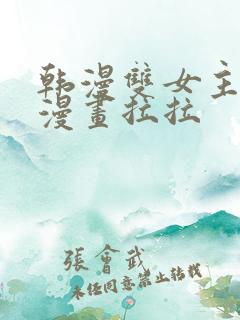 韩漫雙女主
漫畫拉拉
張會武
未经同意禁止转载